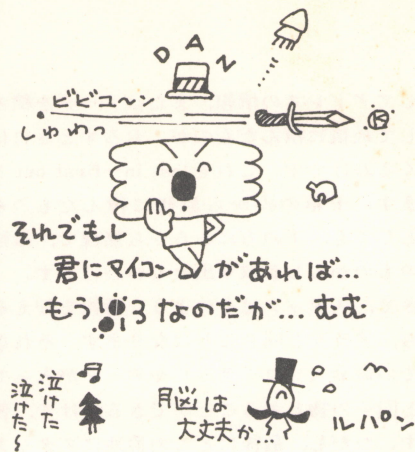 DAN
ビビユ〜ン
しゅわっ
K
それでもし
君にマイコンがあれば…
もう
3なのだが…むむ
泣けた
泣けた〜
脳は
大丈夫か…
ルパン